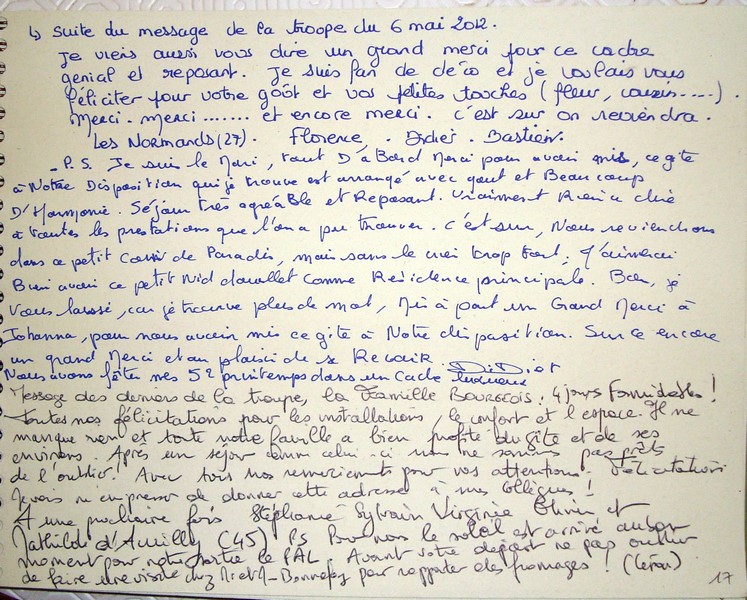 ↳ Suite du message de la troope du 6 mai 2012.
Je viens aussi vous dire un grand merci pour ce cadre
genial et reposant. Je suis fan de déco et je voulais vous
féliciter pour votre goût et vos petites touches (fleur, coussin....).
Merci. merci....... et encore merci. c'est sur on reviendra.
Les Normands (27). Florence, Didier. Bastien.
- P.S. Je suis le Mari, tout D'à Bord Merci pour avoir mis, ce gite
à Notre Disposition qui je trouve est arrangé avec gout et Beaucoup
D'Harmonie. Séjour très agréable et Reposant. Vraiment Rien a dire
à toutes les prestations que l'on a pu trouver. C'est sur, Nous reviendrons
dans ce petit Coin de Paradis, mais sans le crier trop fort, J'aimerai
Bien avoir ce petit Nid douillet comme Residence principale. Bon, je
Vous laisse, car je trouve plus de mot, Mis à part un Grand Merci à
Johanna, pour nous avoir mis ce gite à Notre disposition. Sur ce encore
un grand Merci et au plaisir de se Revoir DiDier
Nous avons fêter mes 52 printemps dans un Cadre
Message des derniers de la troupe, la Famille BOURGEOIS, 4 jours Formidables!
Toutes nos félicitations pour les installations, le confort et l'espace. Il ne
manque rien et toute notre famille a bien profité du gîte et de ses
environs. Après un séjour comme celui-ci nous ne sommes pas prêts
de l'oublier! Avec tous nos remerciements pour vos attentions. Félicitations
Je vais m'empresser de donner cette adresse à mes collègues!
A une prochaine fois Stéphanie Sylvain Virginie Olivier et
Mathilde d'Amilly (45) PS Pour nous le soleil est arrivé au bon
moment pour notre sortie le PAL. Avant votre départ ne pas oublier
de faire une visite chez Bonnefoy pour rapporter des fromages!
17